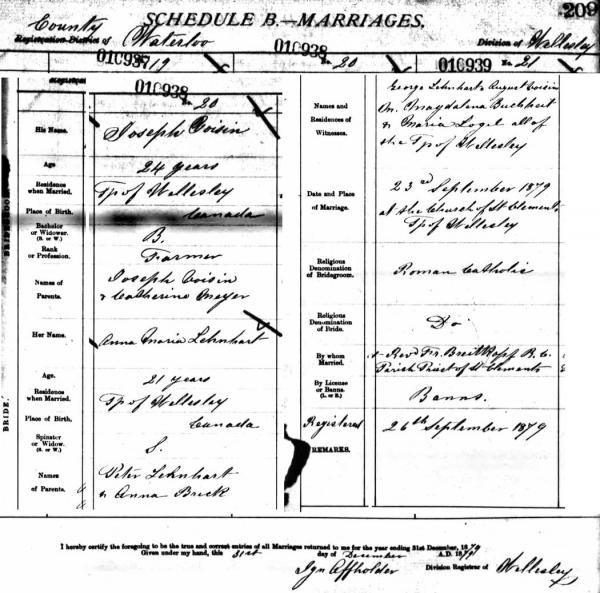 SCHEDULE B.—MARRIAGES.
209
County
Registration District of Waterloo
Division of Wellesley
010937 19
010938 No. 20
010939 No. 21
010938
No. 20
His Name. Joseph Coisin
Age 24 years
Residence when Married. Tp of Wellesley
Place of Birth. Canada
Bachelor or Widower. (B. or W.) B.
Rank or Profession. Farmer
Names of Parents. Joseph Coisin
& Catherine Meyer
BRIDEGROOM
Her Name. Anna Maria Lehnhart
Age. 21 years
Residence when Married. Tp of Wellesley
Place of Birth. Canada
Spinster or Widow. (S. or W.) S.
Names of Parents. Peter Lehnhart
& Anna Brick
BRIDE.
Names and Residences of Witnesses.
George Lehnhart & August Coisin
Magdalena
& Maria Logel all of
the Tp of Wellesley
Date and Place of Marriage.
23rd September 1879
at the Church of St Clements
Tp of Wellesley
Religious Denomination of Bridegroom. Roman Catholic
Religious Denomination of Bride. Do
By whom Married. Revd Fr. Breitkopf R. C.
Parish Priest of St Clements
By License or Banns. (L. or B.) Banns.
Registered 26th September 1879
REMARKS.
I hereby certify the foregoing to be the true and correct entries of all Marriages returned to me for the year ending 31st December, 1879
Given under my hand, this 31st day of December A.D. 1879
Ign Affholder Division Registrar of Wellesley